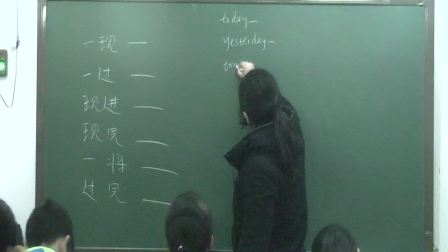 一现 __
一过 __
现进 __
现完 __
一将 __
过完 __
today_
yesterday_
tom